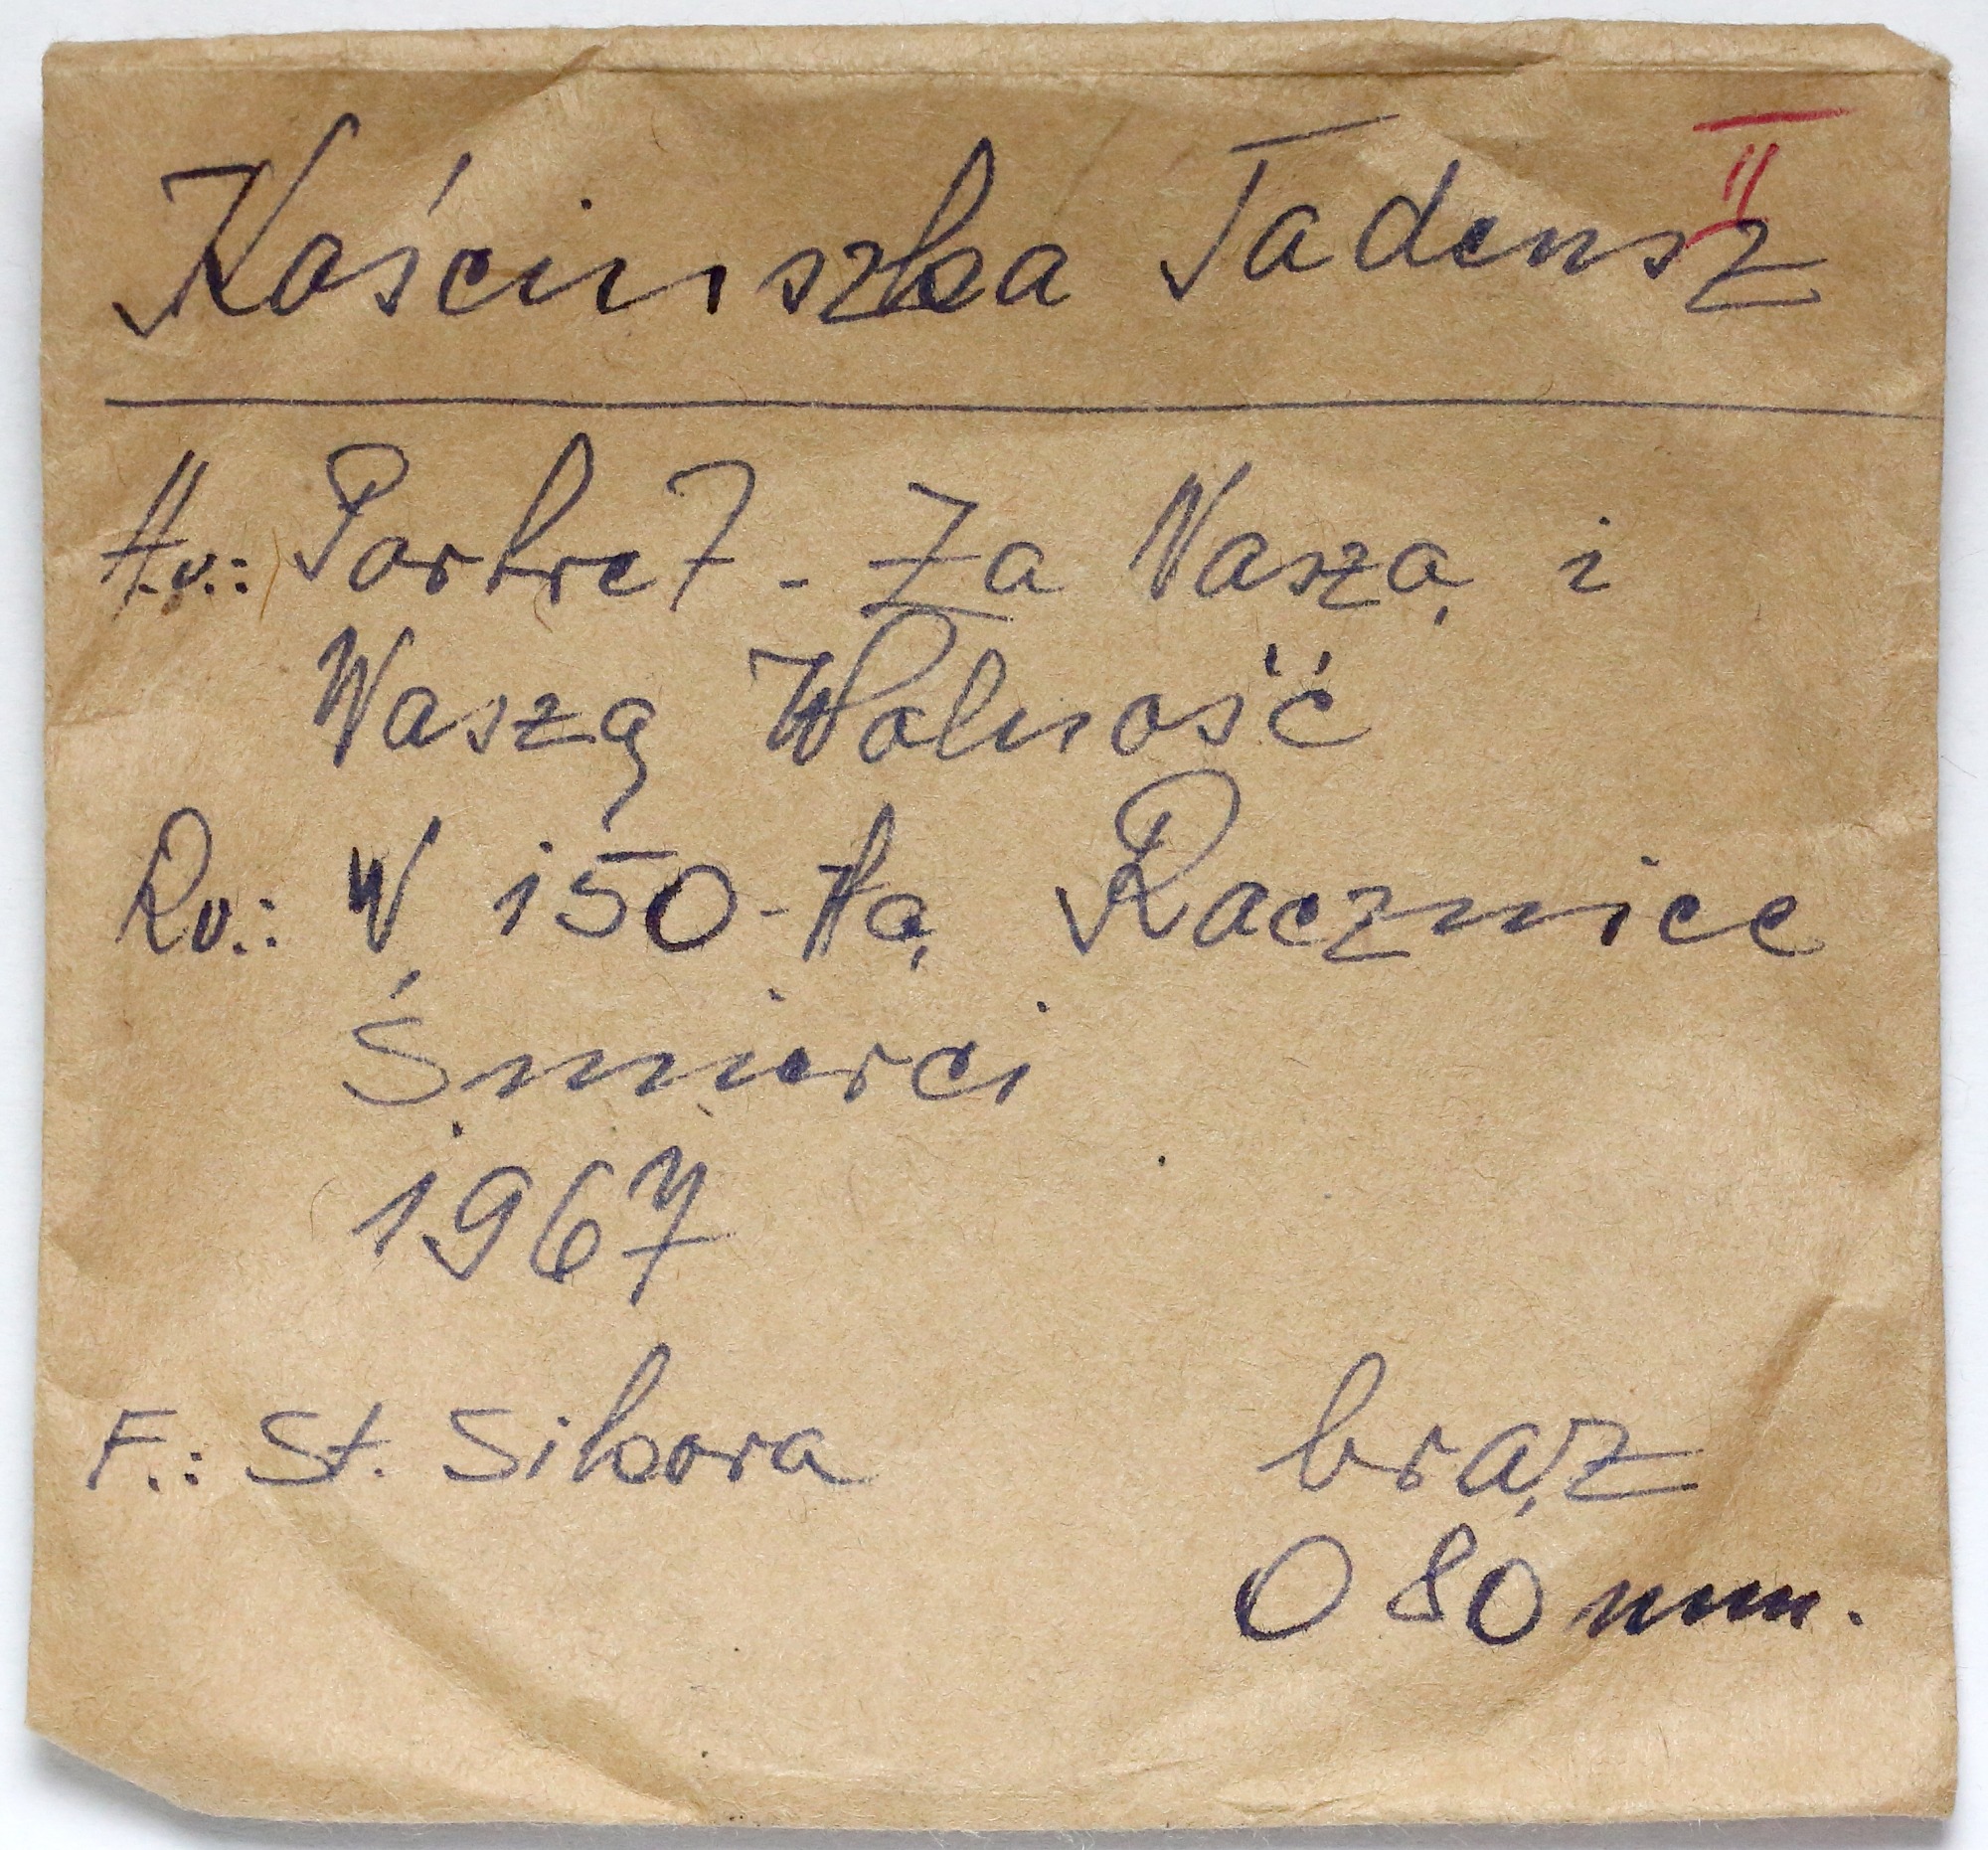 II
Kościuszko Tadeusz
Av.: Portret - Za Naszą i
Waszą Wolność
Rv.: W 150-tą Rocznicę
Śmierci
1967
F.: St. Sikora
brąz
O 80 mm.